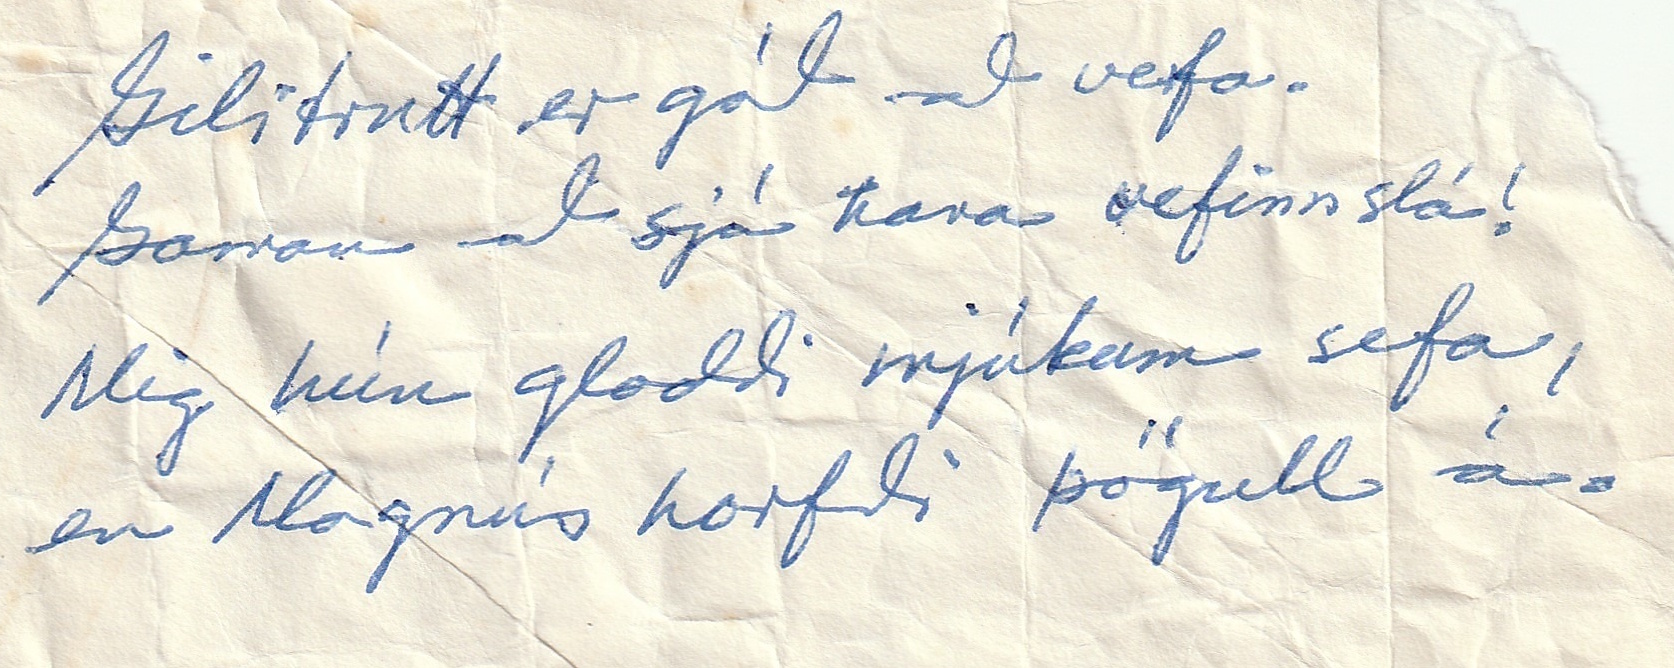 Gilitrutt er góð að vefa.
Gaman að sjá hana vefinn slá!
Mig hún gladdi mjúkum sefa,
en Magnús horfði þögull á.